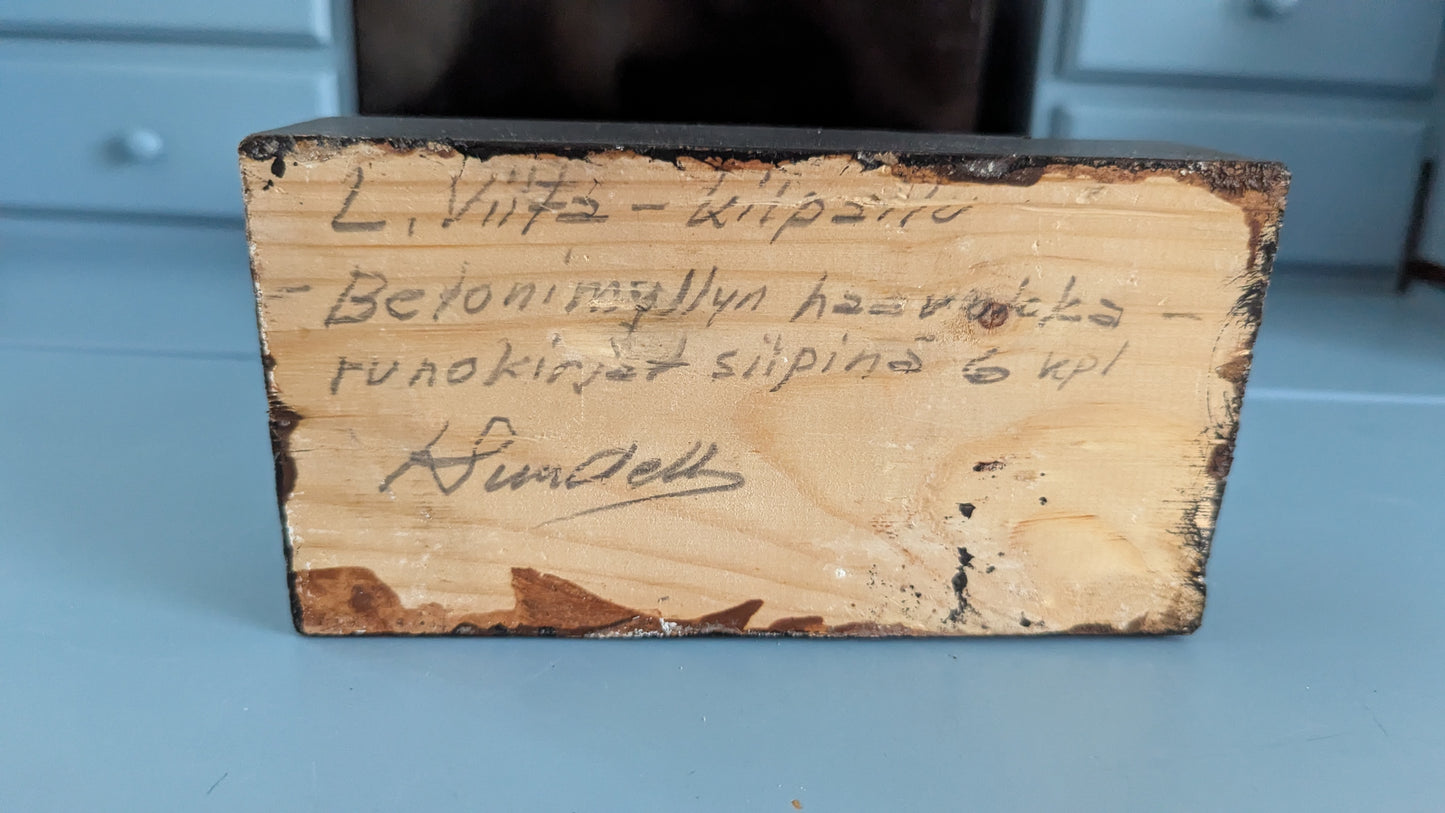 L. Viita - kilpailu
- Betonimyllyn haarukka -
runokirjat siipinä 6 kpl